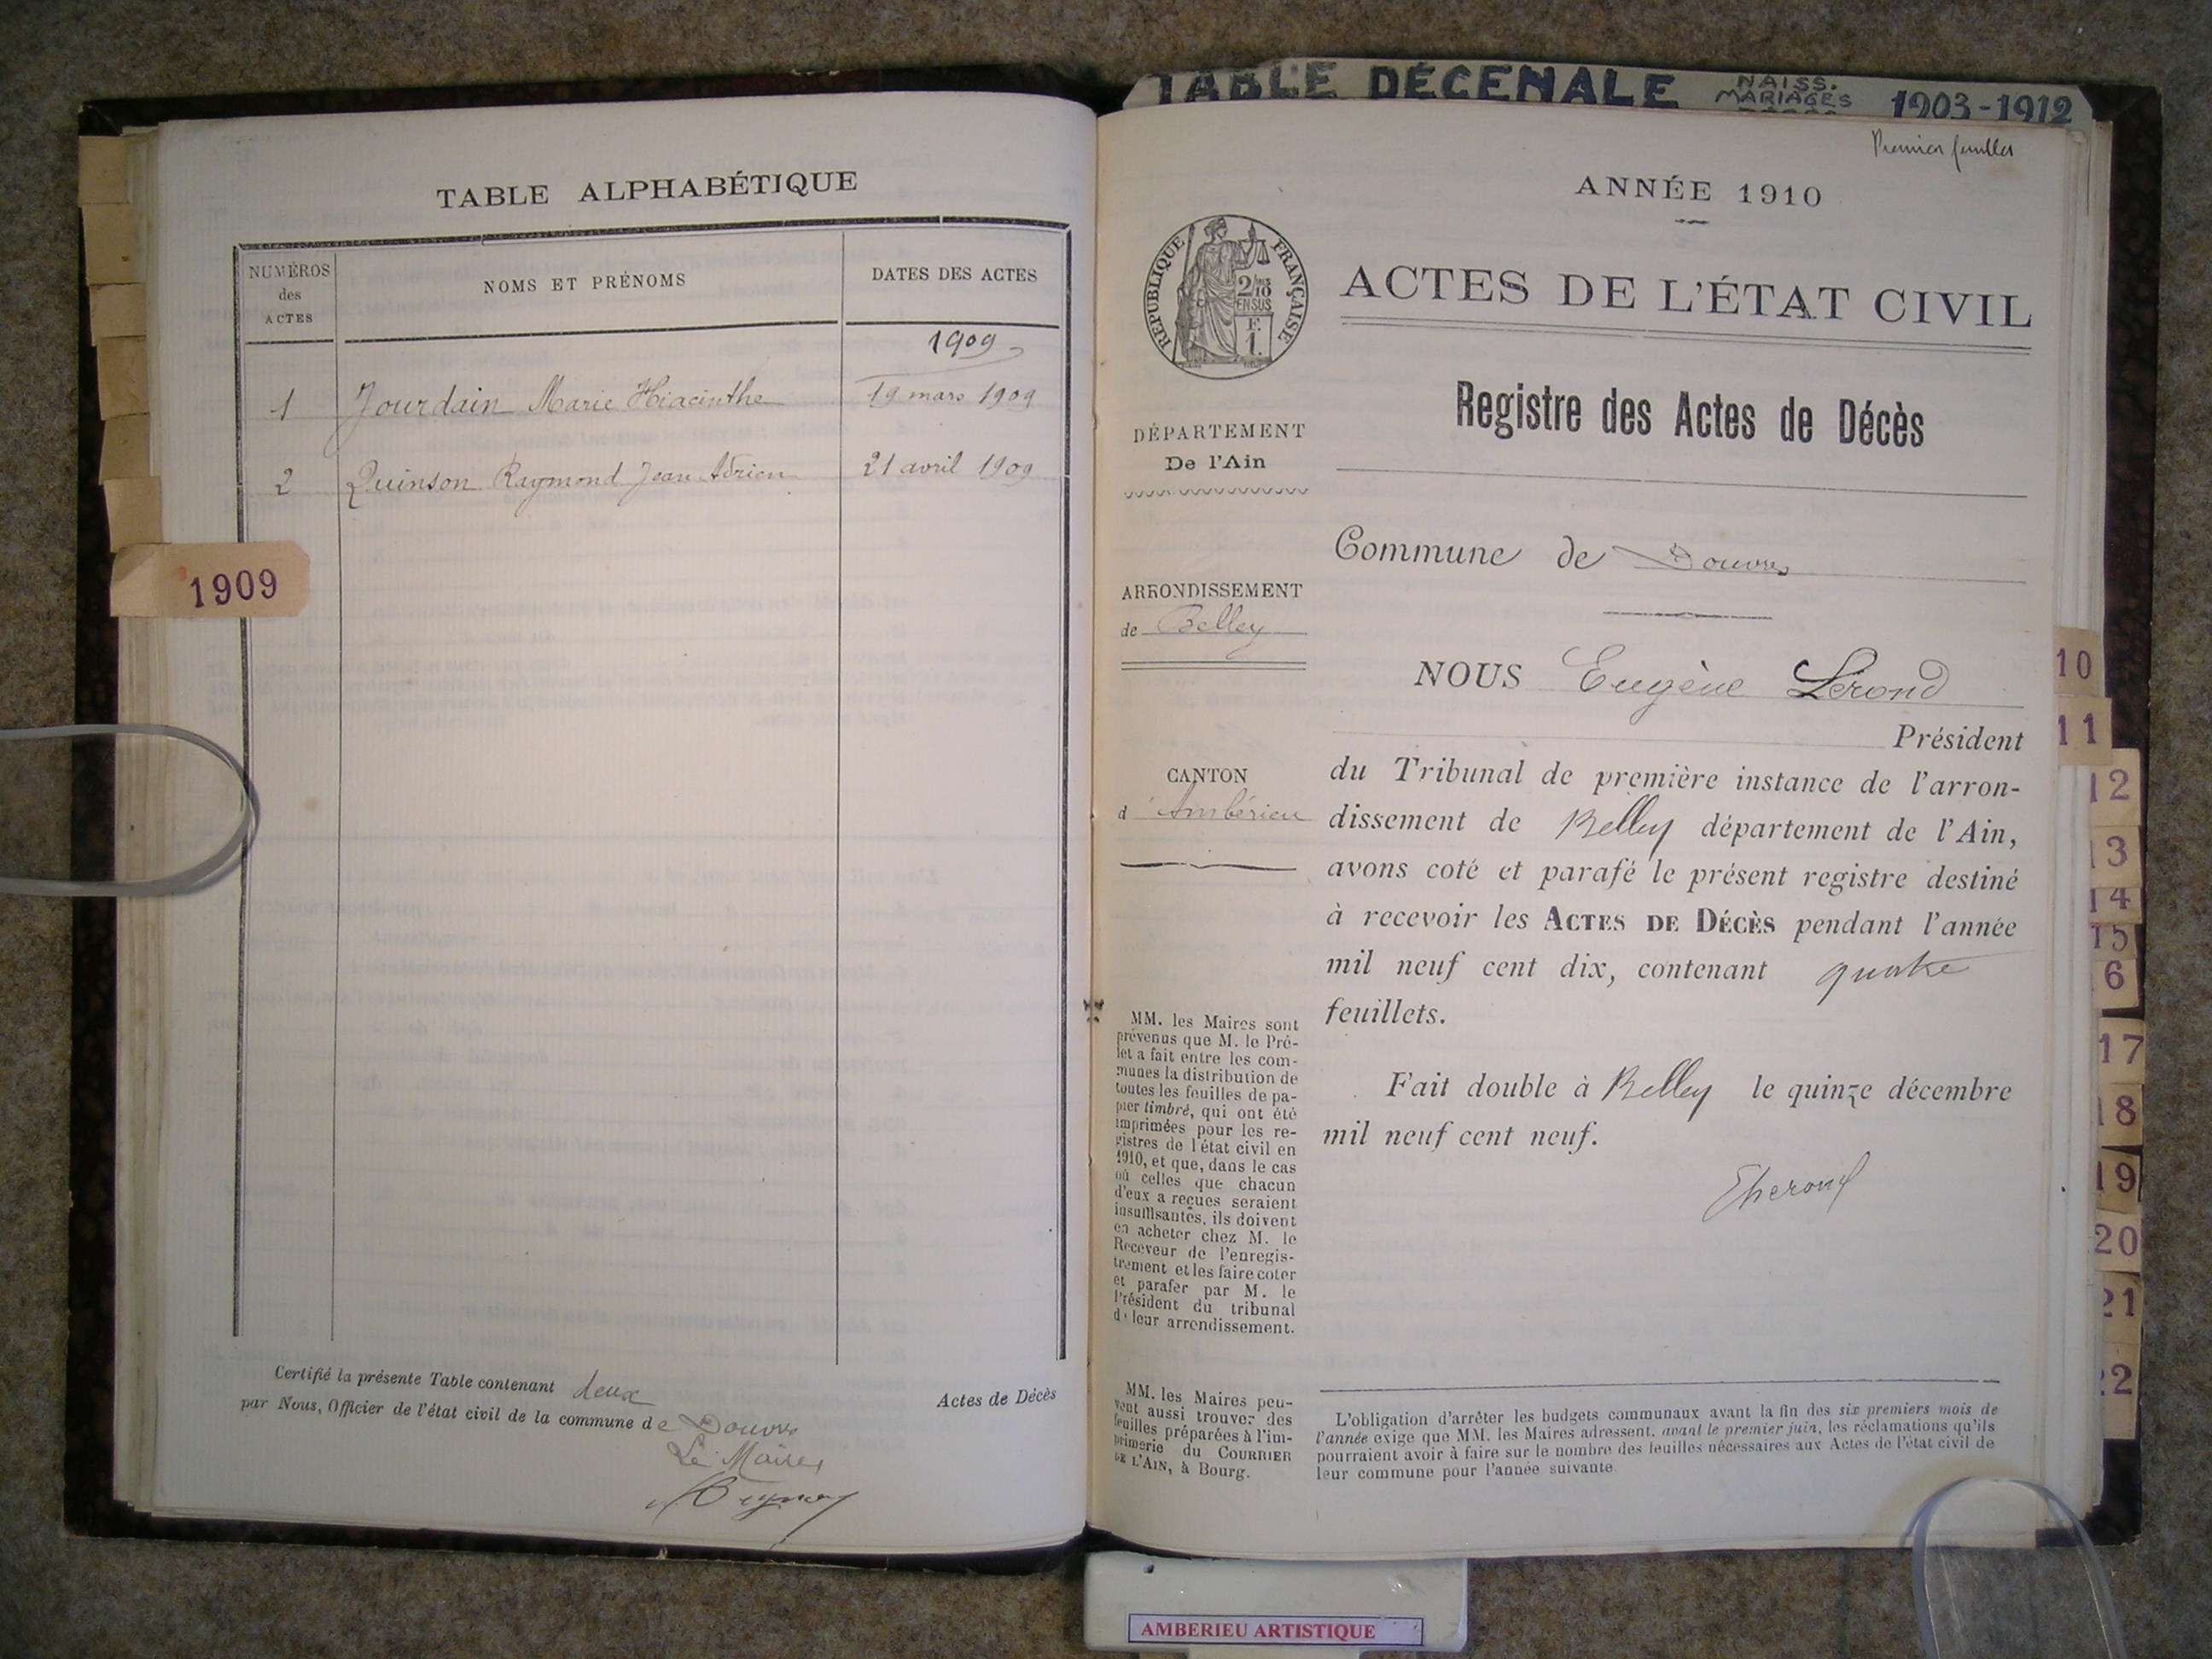 TABLE DÉCENALE NAISS. MARIAGES 1903-1912
TABLE ALPHABÉTIQUE
NUMÉROS
des
ACTES
NOMS ET PRÉNOMS
DATES DES ACTES
1909
1 Jourdain Marie Hiacinthe 19 mars 1909
2 Quinson Raymond Jean Adrien 21 avril 1909
1909
Certifié la présente Table contenant deux Actes de Décès
par Nous, Officier de l'état civil de la commune de Douvres
Le Maire
Premier feuillet
ANNÉE 1910
RÉPUBLIQUE FRANÇAISE
2/10
EN SUS
F.
1.
ACTES DE L'ÉTAT CIVIL
Registre des Actes de Décès
DÉPARTEMENT
De l'Ain
Commune de Douvres
ARRONDISSEMENT
de Belley
NOUS Eugène Lerond
Président
CANTON
d'Ambérieu
du Tribunal de première instance de l'arron-
dissement de Belley département de l'Ain,
avons coté et parafé le présent registre destiné
à recevoir les ACTES DE DÉCÈS pendant l'année
mil neuf cent dix, contenant quatre
feuillets.
Fait double à Belley le quinze décembre
mil neuf cent neuf.
MM. les Maires sont
prévenus que M. le Pré-
fet a fait entre les com-
munes la distribution de
toutes les feuilles de pa-
pier timbré, qui ont été
imprimées pour les re-
gistres de l'état civil en
1910, et que, dans le cas
où celles que chacun
d'eux a reçues seraient
insuffisantes, ils doivent
en acheter chez M. le
Receveur de l'enregis-
trement et les faire coter
et parafer par M. le
Président du tribunal
de leur arrondissement.
MM. les Maires peu-
vent aussi trouver des
feuilles préparées à l'im-
primerie du COURRIER
DE L'AIN, à Bourg.
L'obligation d'arrêter les budgets communaux avant la fin des six premiers mois de
l'année exige que MM. les Maires adressent, avant le premier juin, les réclamations qu'ils
pourraient avoir à faire sur le nombre des feuilles nécessaires aux Actes de l'état civil de
leur commune pour l'année suivante.
10
11
12
13
14
15
6
17
18
19
20
21
22
AMBERIEU ARTISTIQUE